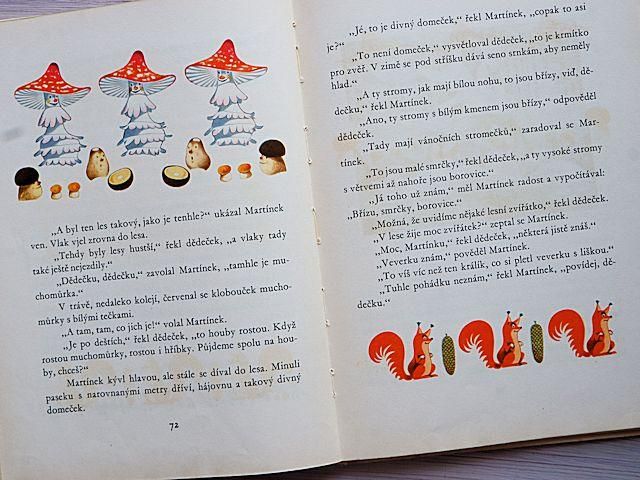 „A byl ten les takový, jako je tenhle?“ ukázal Martínek
ven. Vlak vjel zrovna do lesa.
„Tehdy byly lesy hustší,“ řekl dědeček, „a vlaky tady
také ještě nejezdily.“
„Dědečku, dědečku,“ zavolal Martínek, „tamhle je mu-
chomůrka.“
V trávě, nedaleko kolejí, červenal se klobouček mucho-
můrky s bílými tečkami.
„A tam, tam, co jich je!“ volal Martínek.
„Je po deštích,“ řekl dědeček, „to houby rostou. Když
rostou muchomůrky, rostou i hříbky. Půjdeme spolu na hou-
by, chceš?“
Martínek kývl hlavou, ale stále se díval do lesa. Minuli
paseku s narovnanými metry dříví, hájovnu a takový divný
domeček.
72
„Jé, to je divný domeček,“ řekl Martínek, „copak to asi
je?“
„To není domeček,“ vysvětloval dědeček, „to je krmítko
pro zvěř. V zimě se pod stříšku dává seno srnkám, aby neměly
hlad.“
„A ty stromy, jak mají bílou nohu, to jsou břízy, viď, dě-
dečku,“ řekl Martínek.
„Ano, ty stromy s bílým kmenem jsou břízy,“ odpověděl
dědeček.
„Tady mají vánočních stromečků,“ zaradoval se Mar-
tínek.
„To jsou malé smrčky,“ řekl dědeček, „a ty vysoké stromy
s větvemi až nahoře jsou borovice.“
„Já toho už znám,“ měl Martínek radost a vypočítával:
„Břízu, smrčky, borovice.“
„Možná, že uvidíme nějaké lesní zvířátko,“ řekl dědeček.
„V lese žije moc zvířátek?“ zeptal se Martínek.
„Moc, Martínku,“ řekl dědeček, „některá jistě znáš.“
„Veverku znám,“ pověděl Martínek.
„To víš víc než ten králík, co si pletl veverku s liškou.“
„Tuhle pohádku neznám,“ řekl Martínek, „povídej, dě-
dečku.“